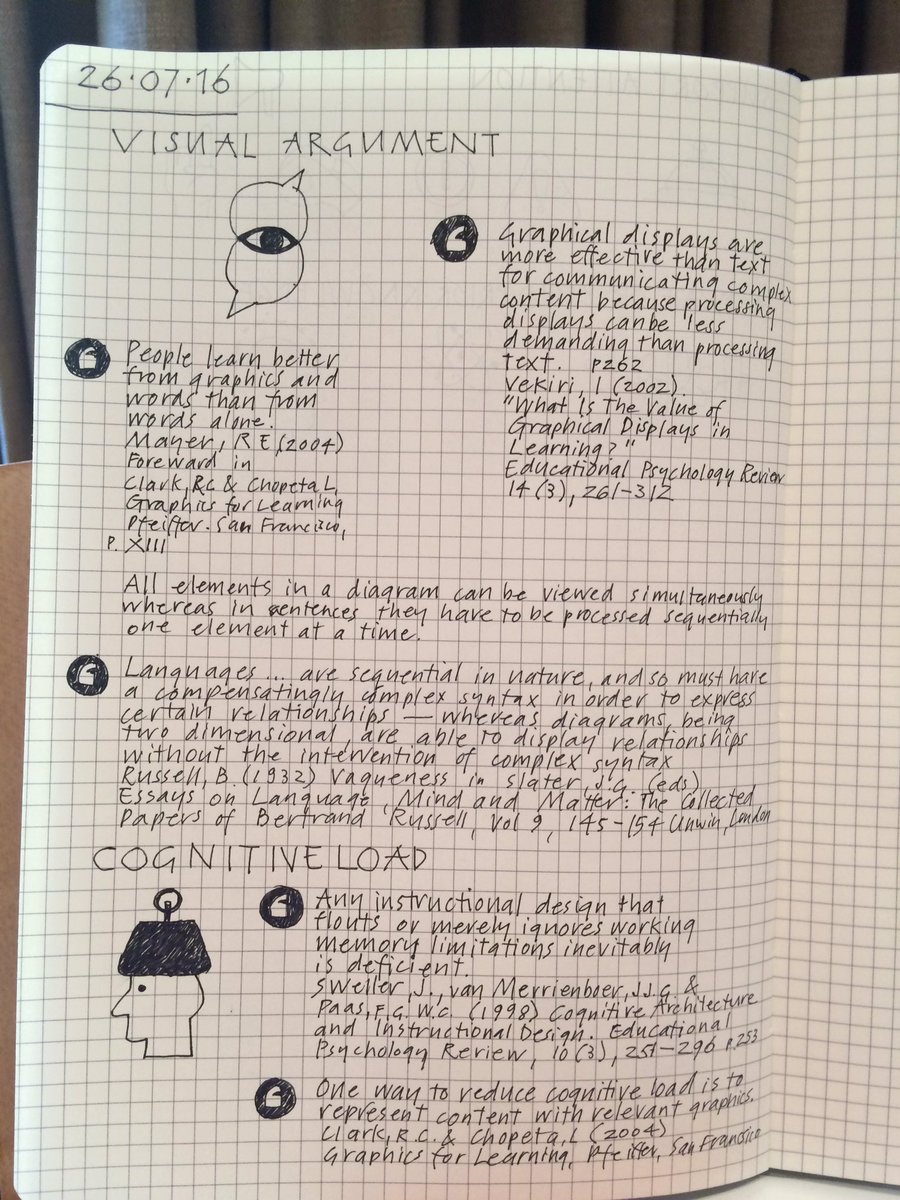 26.07.16
VISUAL ARGUMENT
People learn better
from graphics and
words than from
words alone.
Mayer, R E, (2004)
Foreward in
Clark, RC & Chopeta L,
Graphics for Learning
Pfeiffer. San Francisco,
P. XIII
Graphical displays are
more effective than text
for communicating complex
content because processing
displays can be less
demanding than processing
text. p262
Vekiri, I (2002).
"What Is The Value of
Graphical Displays in
Learning?"
Educational Psychology Review
14 (3), 261-312
All elements in a diagram can be viewed simultaneously
whereas in sentences they have to be processed sequentially
one element at a time.
Languages ... are sequential in nature, and so must have
a compensatingly complex syntax in order to express
certain relationships — whereas diagrams, being
two dimensional, are able to display relationships
without the intervention of complex syntax
Russell, B. (1932) Vagueness in Slater, J.G. (eds)
Essays on Language, Mind and Matter: The Collected
Papers of Bertrand Russell, Vol 9, 145-154 Unwin, London
COGNITIVE LOAD
Any instructional design that
flouts or merely ignores working
memory limitations inevitably
is deficient.
Sweller, J., van Merrienboer, J.J.G. &
Paas, F.G. W.C. (1998) Cognitive Architecture
and Instructional Design. Educational
Psychology Review, 10 (3), 251-296 p.253
One way to reduce cognitive load is to
represent content with relevant graphics.
Clark, R.C. & Chopeta, L (2004)
Graphics for Learning, Pfeiffer, San Francisco